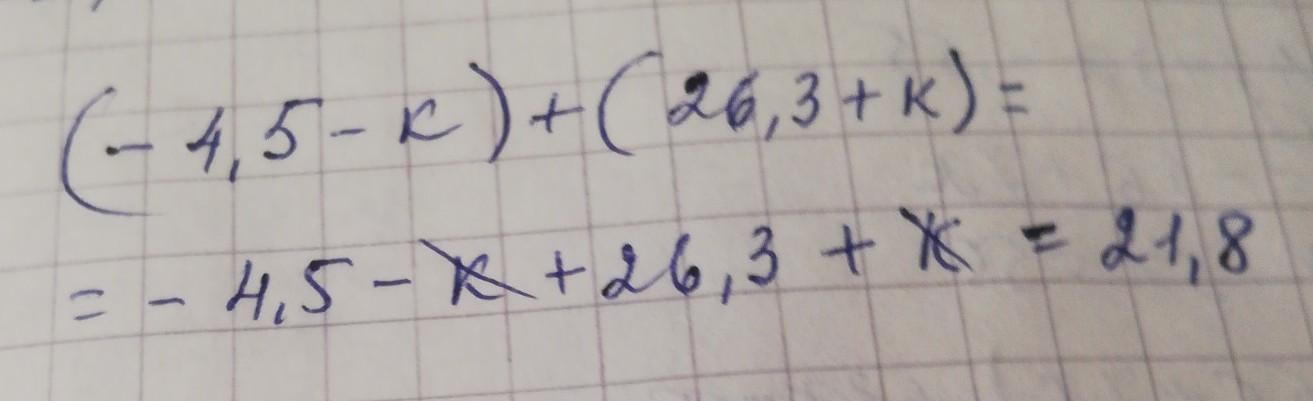 (- 4,5 - к) + (26,3 + к) =
= - 4,5 - к + 26,3 + к = 21,8